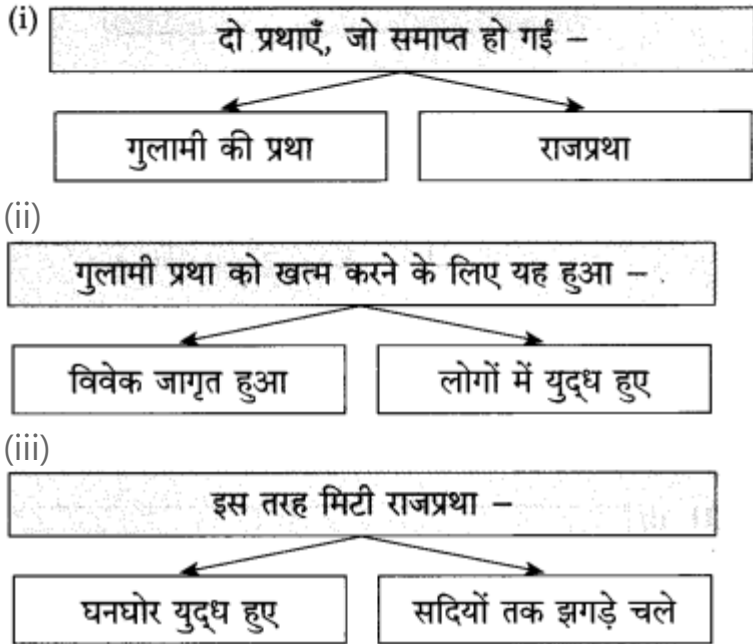 (i)
दो प्रथाएँ, जो समाप्त हो गईं –
गुलामी की प्रथा
राजप्रथा
(ii)
गुलामी प्रथा को खत्म करने के लिए यह हुआ –
विवेक जागृत हुआ
लोगों में युद्ध हुए
(iii)
इस तरह मिटी राजप्रथा –
घनघोर युद्ध हुए
सदियों तक झगड़े चले